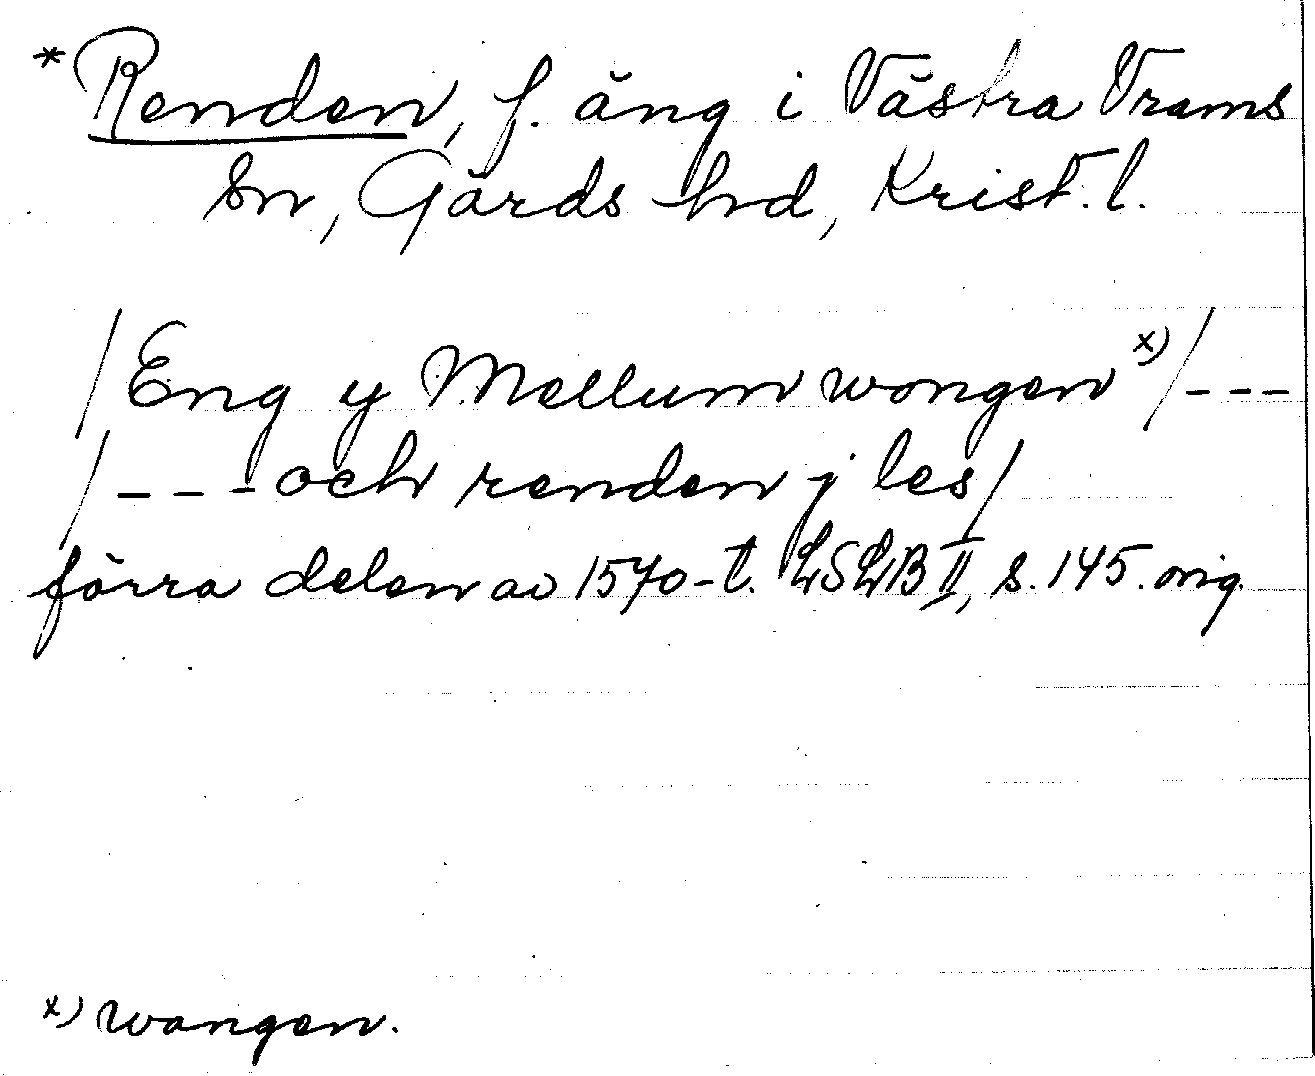 *Renden, f. äng i Västra Vrams
sn, Gärds hd, Krist. l.
/Eng y Mellum wongen x)/---
/---och renden j les/
förra delen av 1570-t. LSLB II, s. 145. orig.
x) wangen.